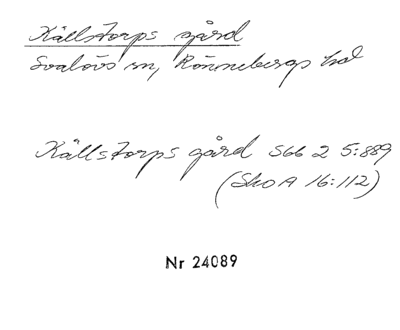 Källstorps gård
Svalövs sn, Rönnebergs hd
Källstorps gård S66 2 5:889
(Sko A 16:112)
Nr 24089